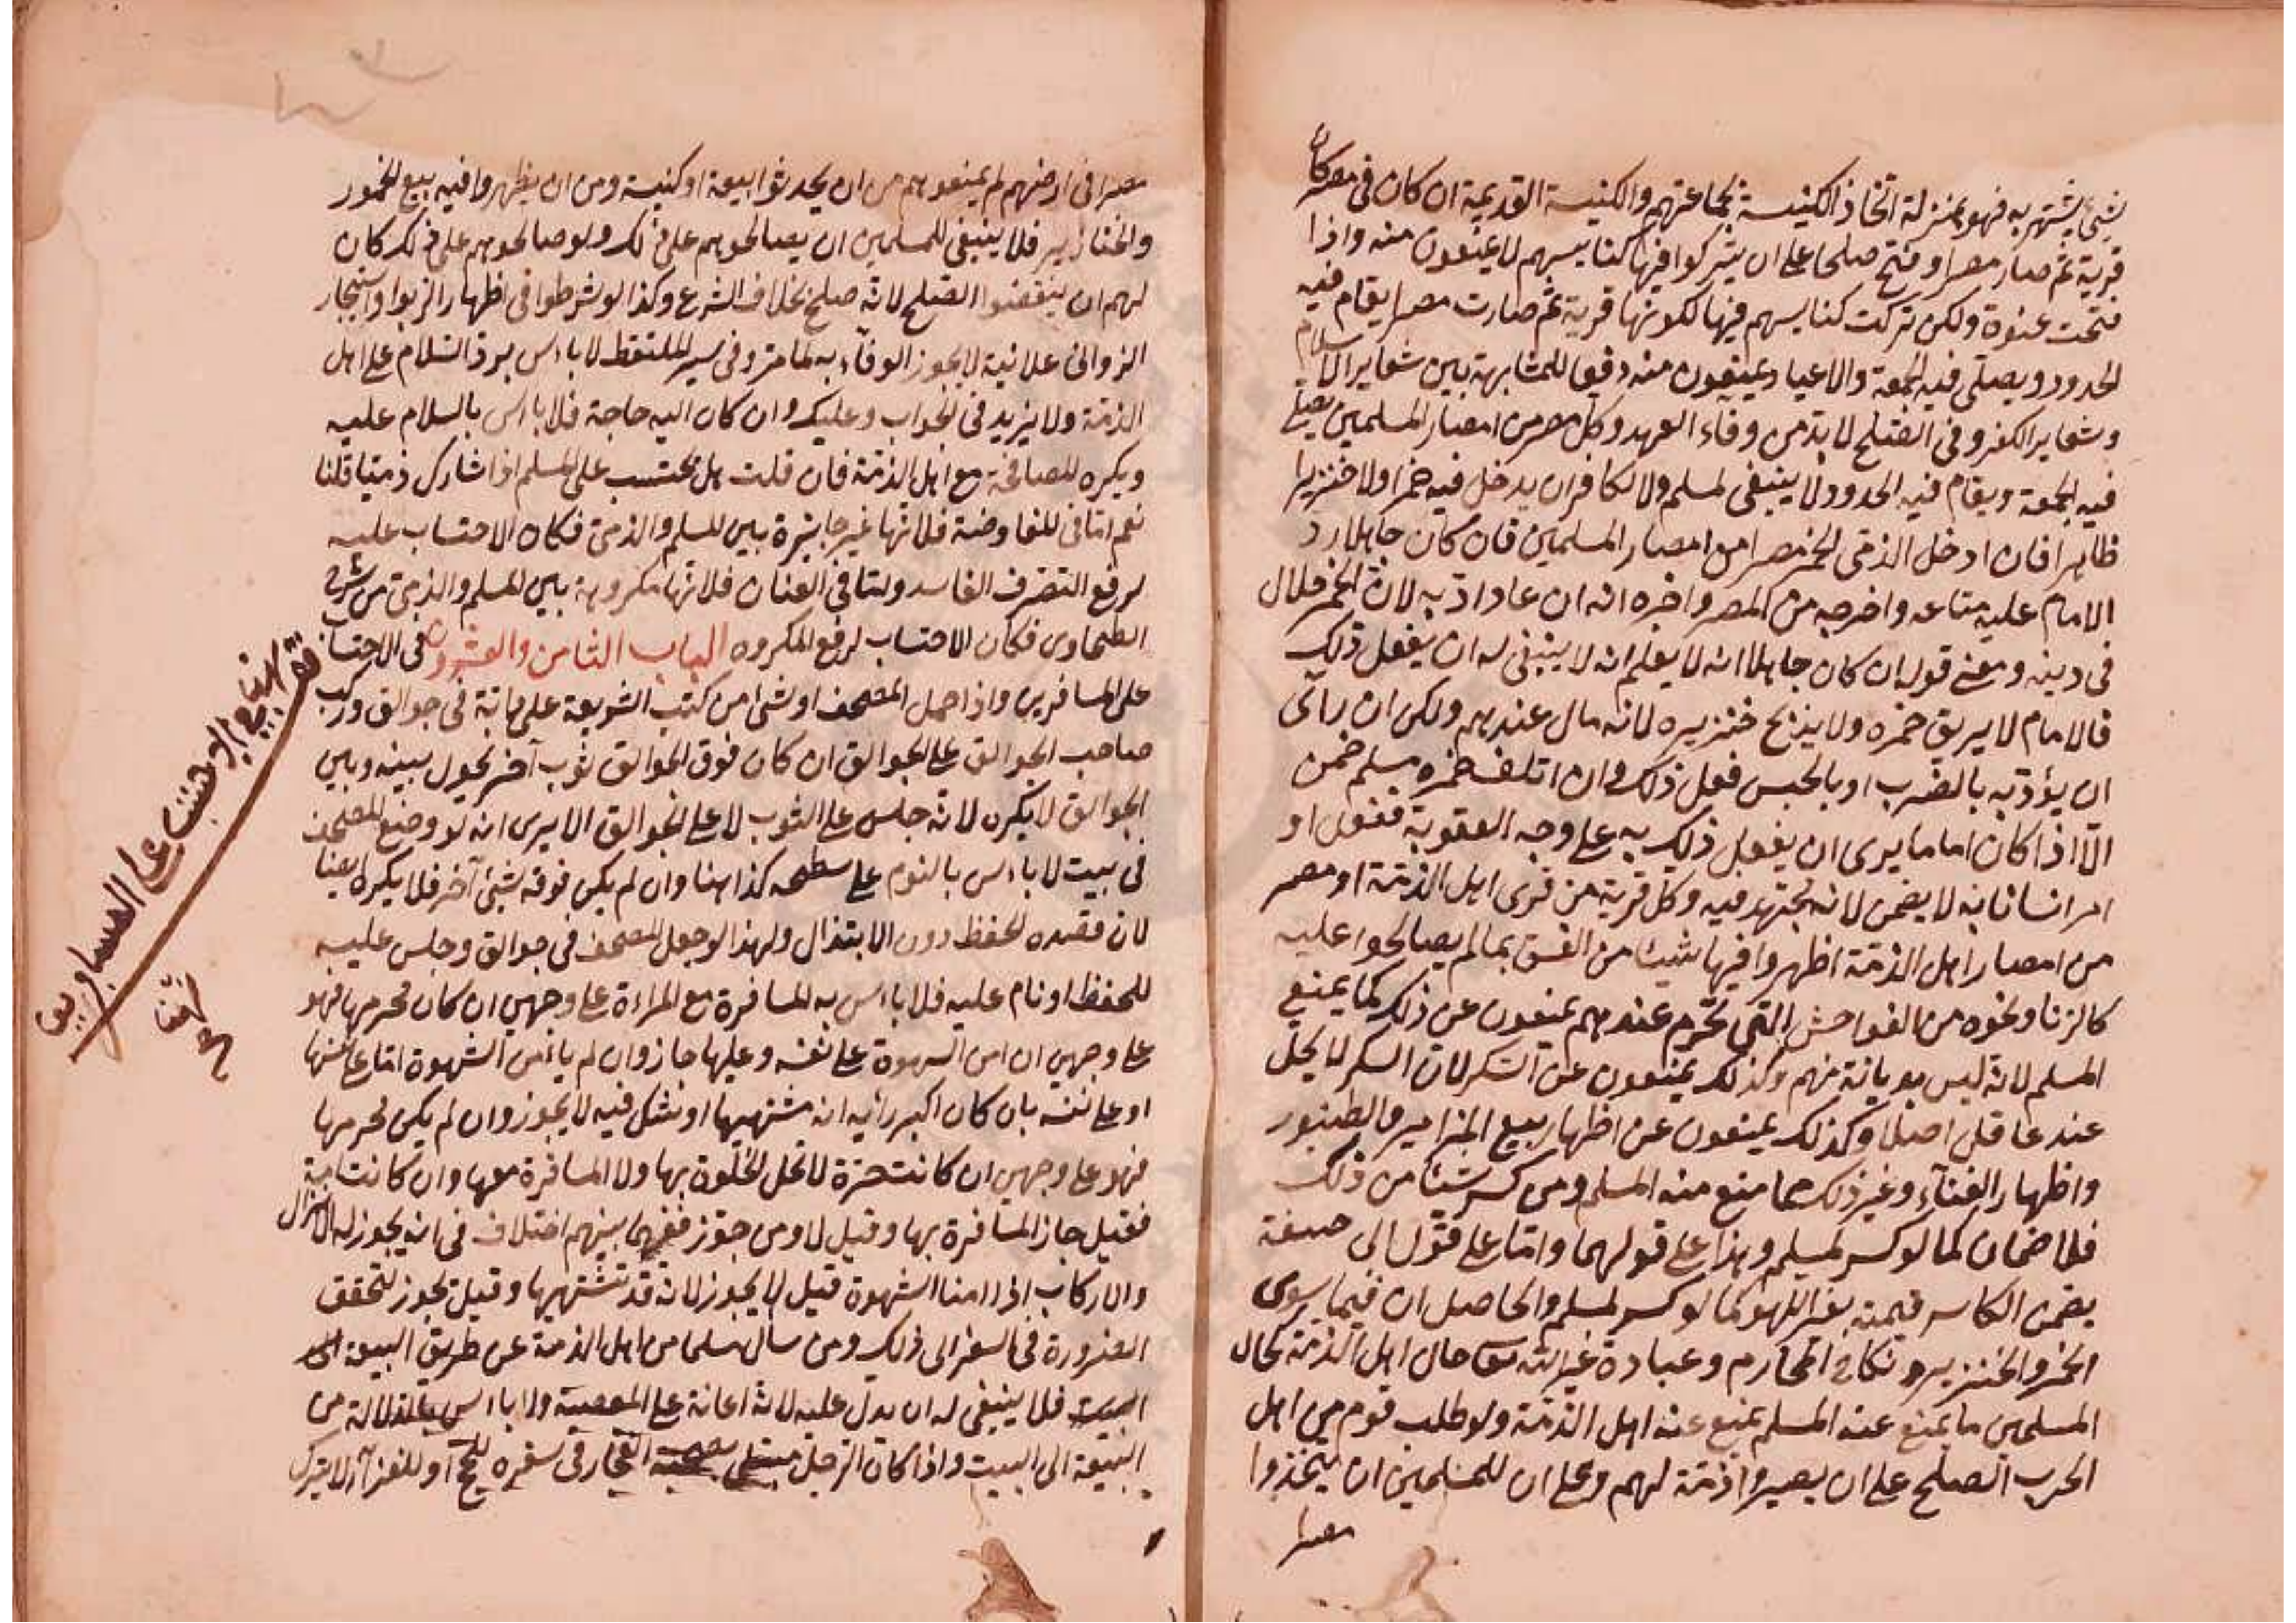 شئ يشتهر به فهو بمنزلة اتخاذ الكنيسة لجماعتهم والكنيسة القديمة ان كان في مصر كان
قرية ثم صار مصرا و فتح صلحا على ان يتركوا فيها كنايسهم لا يمنعون منه واذا
فتحت عنوة ولكن تركت كنايسهم فيها لكونها قرية ثم صارت مصرا يقام فيه
الحدود ويصلى فيه الجمعة والاعياد يمنعون منه دفعا للمشابهة بين شعاير الاسلام
وشعاير الكفر وفي الصلح لا بد من وفاء العهد وكل مصر من امصار المسلمين يصلى
فيه الجمعة ويقام فيه الحدود لا ينبغى لمسلم ولا لكافر ان يدخل فيه خمرا ولا خنزيرا
ظاهرا فان ادخل الذمى الخمر مصرا من امصار المسلمين فان كان جاهلا رد
الامام عليه متاعه واخرجه من المصر واخبره انه ان عاد ادبه لان الخمر حلال
فى دينه ومعنى قوله ان كان جاهلا انه لا يعلم انه لا ينبغى له ان يفعل ذلك
فالامام لا يريق خمره ولا يذبح خنزيره لانه مال عندهم ولكن ان راى
ان يؤدبه بالضرب او بالحبس فعل ذلك وان اتلف خمره مسلم ضمن
الا اذا كان اماما يرى ان يفعل ذلك به على وجه العقوبة ففعل او
امر انسانا به لا يضمن لانه مجتهد فيه وكل قرية من قرى اهل الذمة او مصر
من امصار اهل الذمة اظهروا فيها شيئا من الفسق مما لم يصالحوا عليه
كالزنا ونحوه من الفواحش التي تحرم عندهم يمنعون عن ذلك كما يمنع
المسلم لانه ليس بديانة منهم وكذلك يمنعون عن السكر لان السكر لا يحل
عند عاقل اصلا وكذلك يمنعون عن اظهار بيع المزامير والطنبور
واظهار الغناء وغير ذلك مما منع منه المسلم ومن كسر شيئا من ذلك
فلا ضمان كما لو كسر لمسلم وهذا على قولهما واما على قول ابى حنيفة
يضمن الكاسر قيمته بغير اللهو كما لو كسر لمسلم والحاصل ان فيما سوى
الخمر والخنزير ونكاح المحارم وعبادة غير الله تعا حال اهل الذمة كحال
المسلمين ما يمنع عنه المسلم يمنع عنه اهل الذمة ولو طلب قوم من اهل
الحرب الصلح على ان يصيروا ذمة لهم وعلى ان للمسلمين ان يتخذوا
مصرا
مصرا فى ارضهم لم يمنعوهم من ان يحدثوا بيعة او كنيسة ومن ان يظهروا فيه بيع الخمور
والخنازير فلا ينبغى للمسلمين ان يصالحوهم على ذلك ولو صالحوهم على ذلك كان
لهم ان ينقضوا الصلح لانه صلح بخلاف الشرع وكذا لو شرطوا فى اظهار الربوا واستيجار
الزوانى علانية لا يجوز الوفاء به لما مر وفى سير الملتقط لا باس برد السلام على اهل
الذمة ولا يزيد فى الجواب وعليك وان كان اليه حاجة فلا باس بالسلام عليه
ويكره المصافحة مع اهل الذمة فان قلت هل يحتسب على المسلم اذا شارك ذميا قلنا
نعم اما فى المفاوضة فلانها غير جايزة بين المسلم والذمى فكان الاحتساب عليه
لرفع التصرف الفاسد واما فى العنان فلانها مكروهة بين المسلم والذمى من شرح
الطحاوى فكان الاحتساب لرفع المكروه الباب الثامن والعشرون فى الاحتساب
على المسافرين واذا حمل المصحف او شئ من كتب الشريعة على دابة فى جوالق وركب
صاحب الجوالق على الجوالق ان كان فوق الجوالق ثوب آخر يحول بينه وبين
الجوالق لا يكره لانه جلس على الثوب لا على الجوالق الا يرى انه لو وضع المصحف
فى بيت لا باس بالنوم على سطحه كذا هنا وان لم يكن فوقه شئ آخر فلا يكره ايضا
لان قصده الحفظ دون الابتذال ولهذا لو جعل المصحف فى جوالق وجلس عليه
للحفظ او نام عليه فلا باس به المسافرة مع المراءة على وجهين ان كان محرمها فهو
على وجهين ان امن الشهوة على نفسه وعليها جاز وان لم يامن الشهوة اما عليها
او على نفسه بان كان اكبر رأيه انه مشتهيها او شك فيه لا يجوز وان لم يكن محرمها
فهو على وجهين ان كانت حرة لا تحل الخلوة بها ولا المسافرة معها وان كانت امة
فقيل جاز المسافرة بها وقيل لا ومن جوز ففيما بينهم اختلاف فى انه يجوز له الانزال
والاركاب اذا امنا الشهوة قيل لا يجوز لانه قد تشتهيها وقيل يجوز لتحقق
الضرورة فى السفر الى ذلك ومن سأل مسلما من اهل الذمة عن طريق البيعة
فلا ينبغى له ان يدل عليه لانه اعانة على المعصية ولا باس بالدلالة من
البيعة الى البيت واذا كان الرجل مبتلى بصحبة الفجار فى سفره للحج او للغزاء لا يترك
على المسافرين